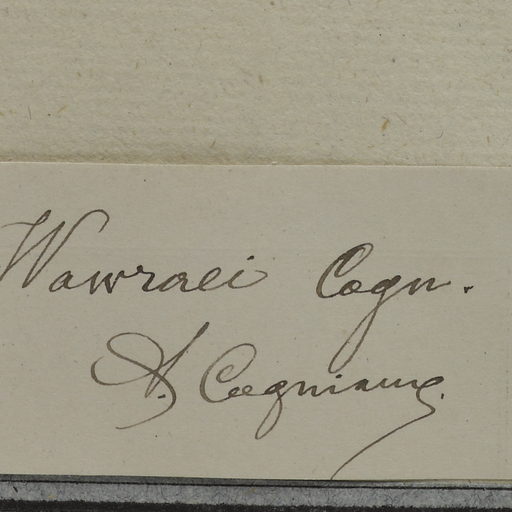 Wawraei Cogn.
A. Cogniaux.